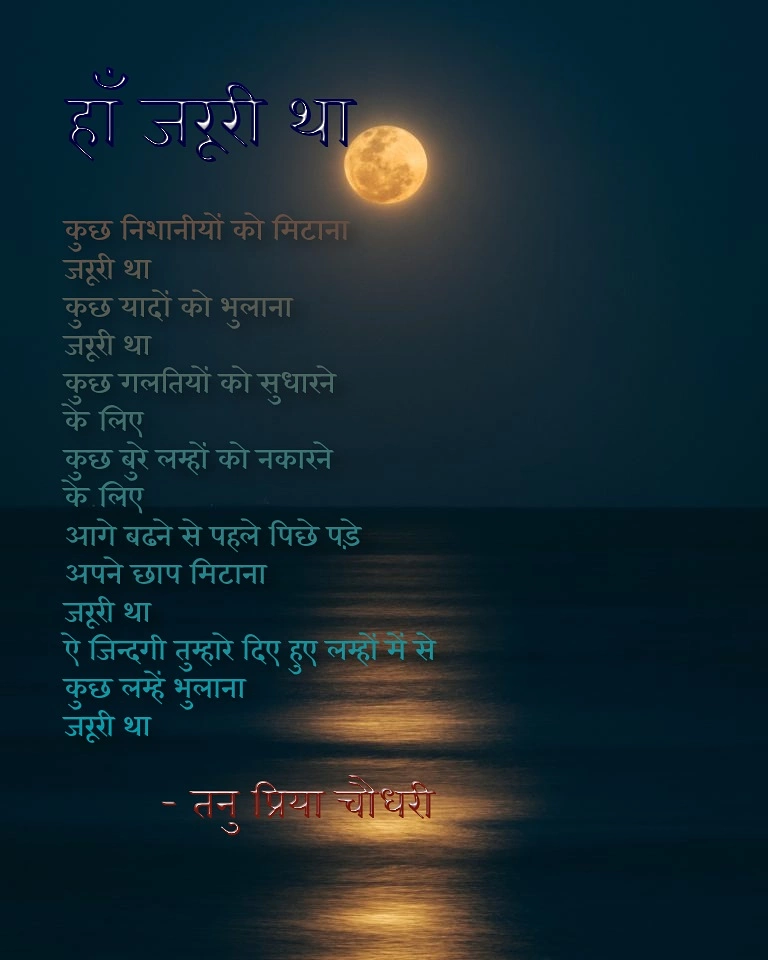 हाँ जरूरी था
कुछ निशानीयों को मिटाना
जरूरी था
कुछ यादों को भुलाना
जरूरी था
कुछ गलतियों को सुधारने
के लिए
कुछ बुरे लम्हों को नकारने
के लिए
आगे बढने से पहले पिछे पड़े
अपने छाप मिटाना
जरूरी था
ऐ जिन्दगी तुम्हारे दिए हुए लम्हों में से
कुछ लम्हें भुलाना
जरूरी था
- तनु प्रिया चौधरी